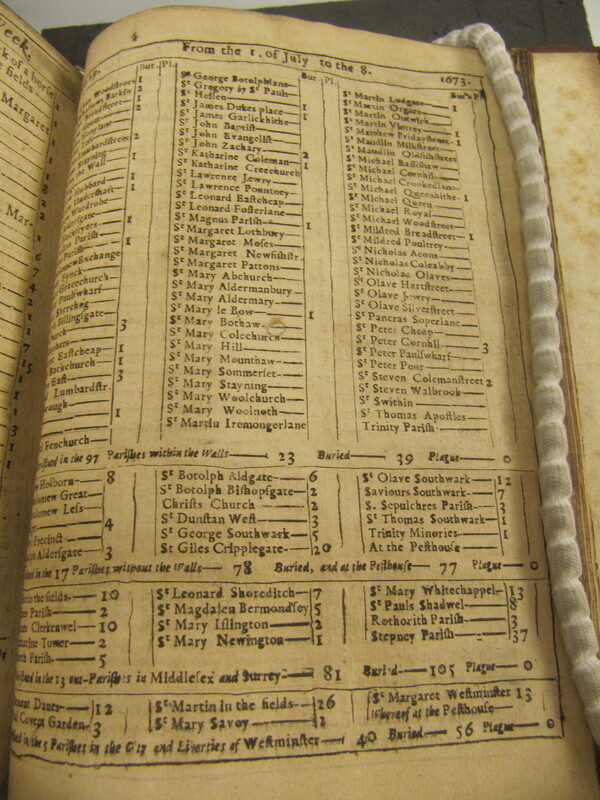 4
From the 1. of July to the 8.
1673.
Bur. Pl.
Woodstreet 1
Barkin 3
Breadstreet 1
2
Lumbardstreet 2
Stayning
the Wall 1
Hubbard 1
Undershaft 1
Wardrobe
Aldersgate 1
Blackfryers
Parish 1
Parish
Exchange
Fynck
Gracechurch
Paulswharf
Sherehog
Billingsgate
3
Eastcheap 1
Backchurch 1
East 3
Lumbardstr.
1
Fenchurch
Bur. Pl.
St George Botolphlane
St Gregory by St Pauls 1
St Hellen
St James Dukes place 1
St James Garlickhithe 1
St John Baptist
St John Evangelist
St John Zachary
St Katharine Coleman 2
St Katharine Creechurch 1
St Lawrence Jewry
St Lawrence Pountney
St Leonard Eastcheap
St Leonard Fosterlane
St Magnus Parish
St Margaret Lothbury 1
St Margaret Moses
St Margaret Newfishstr.
St Margaret Pattons
St Mary Abchurch
St Mary Aldermanbury
St Mary Aldermary
St Mary le Bow 1
St Mary Bothaw
St Mary Colechurch
St Mary Hill
St Mary Mounthaw
St Mary Sommerset
St Mary Stayning
St Mary Woolchurch
St Mary Woolnoth
St Martin Iremongerlane
Bur. Pl
St Martin Ludgate 1
St Martin Orgars
St Martin Outwich
St Martin Vintrey 1
St Matthew Fridaystreet 1
St Maudlin Milkstreet
St Maudlin Oldfishstreet
St Michael Bassishaw
St Michael Cornhil
St Michael Crookedlane
St Michael Queenhithe 1
St Michael Quern
St Michael Royal
St Michael Woodstreet
St Mildred Breadstreet 1
St Mildred Poultrey
St Nicholas Acons
St Nicholas Coleabby
St Nicholas Olaves
St Olave Hartstreet
St Olave Jewry
St Olave Silverstreet
St Pancras Soperlane
St Peter Cheap
St Peter Cornhil 3
St Peter Paulswharf
St Peter Poor
St Steven Colemanstreet 2
St Steven Walbrook
St Swithin
St Thomas Apostles
Trinity Parish
in the 97 Parishes within the Walls 23 Buried 39 Plague 0
Holborn 8
Great
Less
4
Precinct
Aldersgate 3
St Botolph Aldgate 6
St Botolph Bishopsgate 2
Christs Church 2
St Dunstan West 3
St George Southwark 5
St Giles Cripplegate 20
St Olave Southwark 12
Saviours Southwark 7
S. Sepulchres Parish 3
St Thomas Southwark 1
Trinity Minories 1
At the Pesthouse
in the 17 Parishes without the Walls 78 Buried, and at the Pesthouse 77 Plague 0
in the fields 10
Parish 2
Clerkenwel 10
Tower 2
Parish 5
St Leonard Shoreditch 7
St Magdalen Bermondsey 5
St Mary Islington 2
St Mary Newington 1
St Mary Whitechappel 13
St Pauls Shadwel 8
Rothorith Parish 3
Stepney Parish 37
in the 13 out-Parishes in Middlesex and Surrey 81 Buried 105 Plague 0
Danes 12
Covent Garden 3
St Martin in the fields 26
St Mary Savoy 2
St Margaret Westminster 13
Whereof at the Pesthouse
in the 5 Parishes in the City and Liberties of Westminster 40 Buried 56 Plague 0